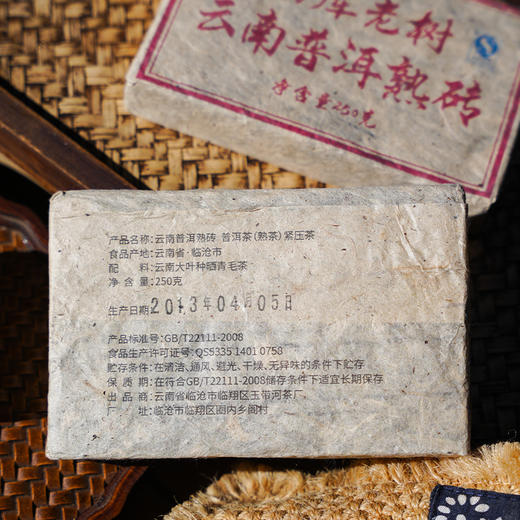 年老树
云南普洱熟砖
净含量250克
产品名称:云南普洱熟砖 普洱茶(熟茶)紧压茶
食品产地:云南省·临沧市
配 料:云南大叶种晒青毛茶
净 含 量:250克
生产日期 2013年04月05日
产品标准号:GB/T22111-2008
食品生产许可证号:QS5335 1401 0758
贮存条件:在清洁、通风、避光、干燥、无异味的条件下贮存
保 质 期:在符合GB/T22111-2008储存条件下适宜长期保存
出 品 商:云南省临沧市临翔区玉带河茶厂
厂 址:临沧市临翔区圈内乡阁村